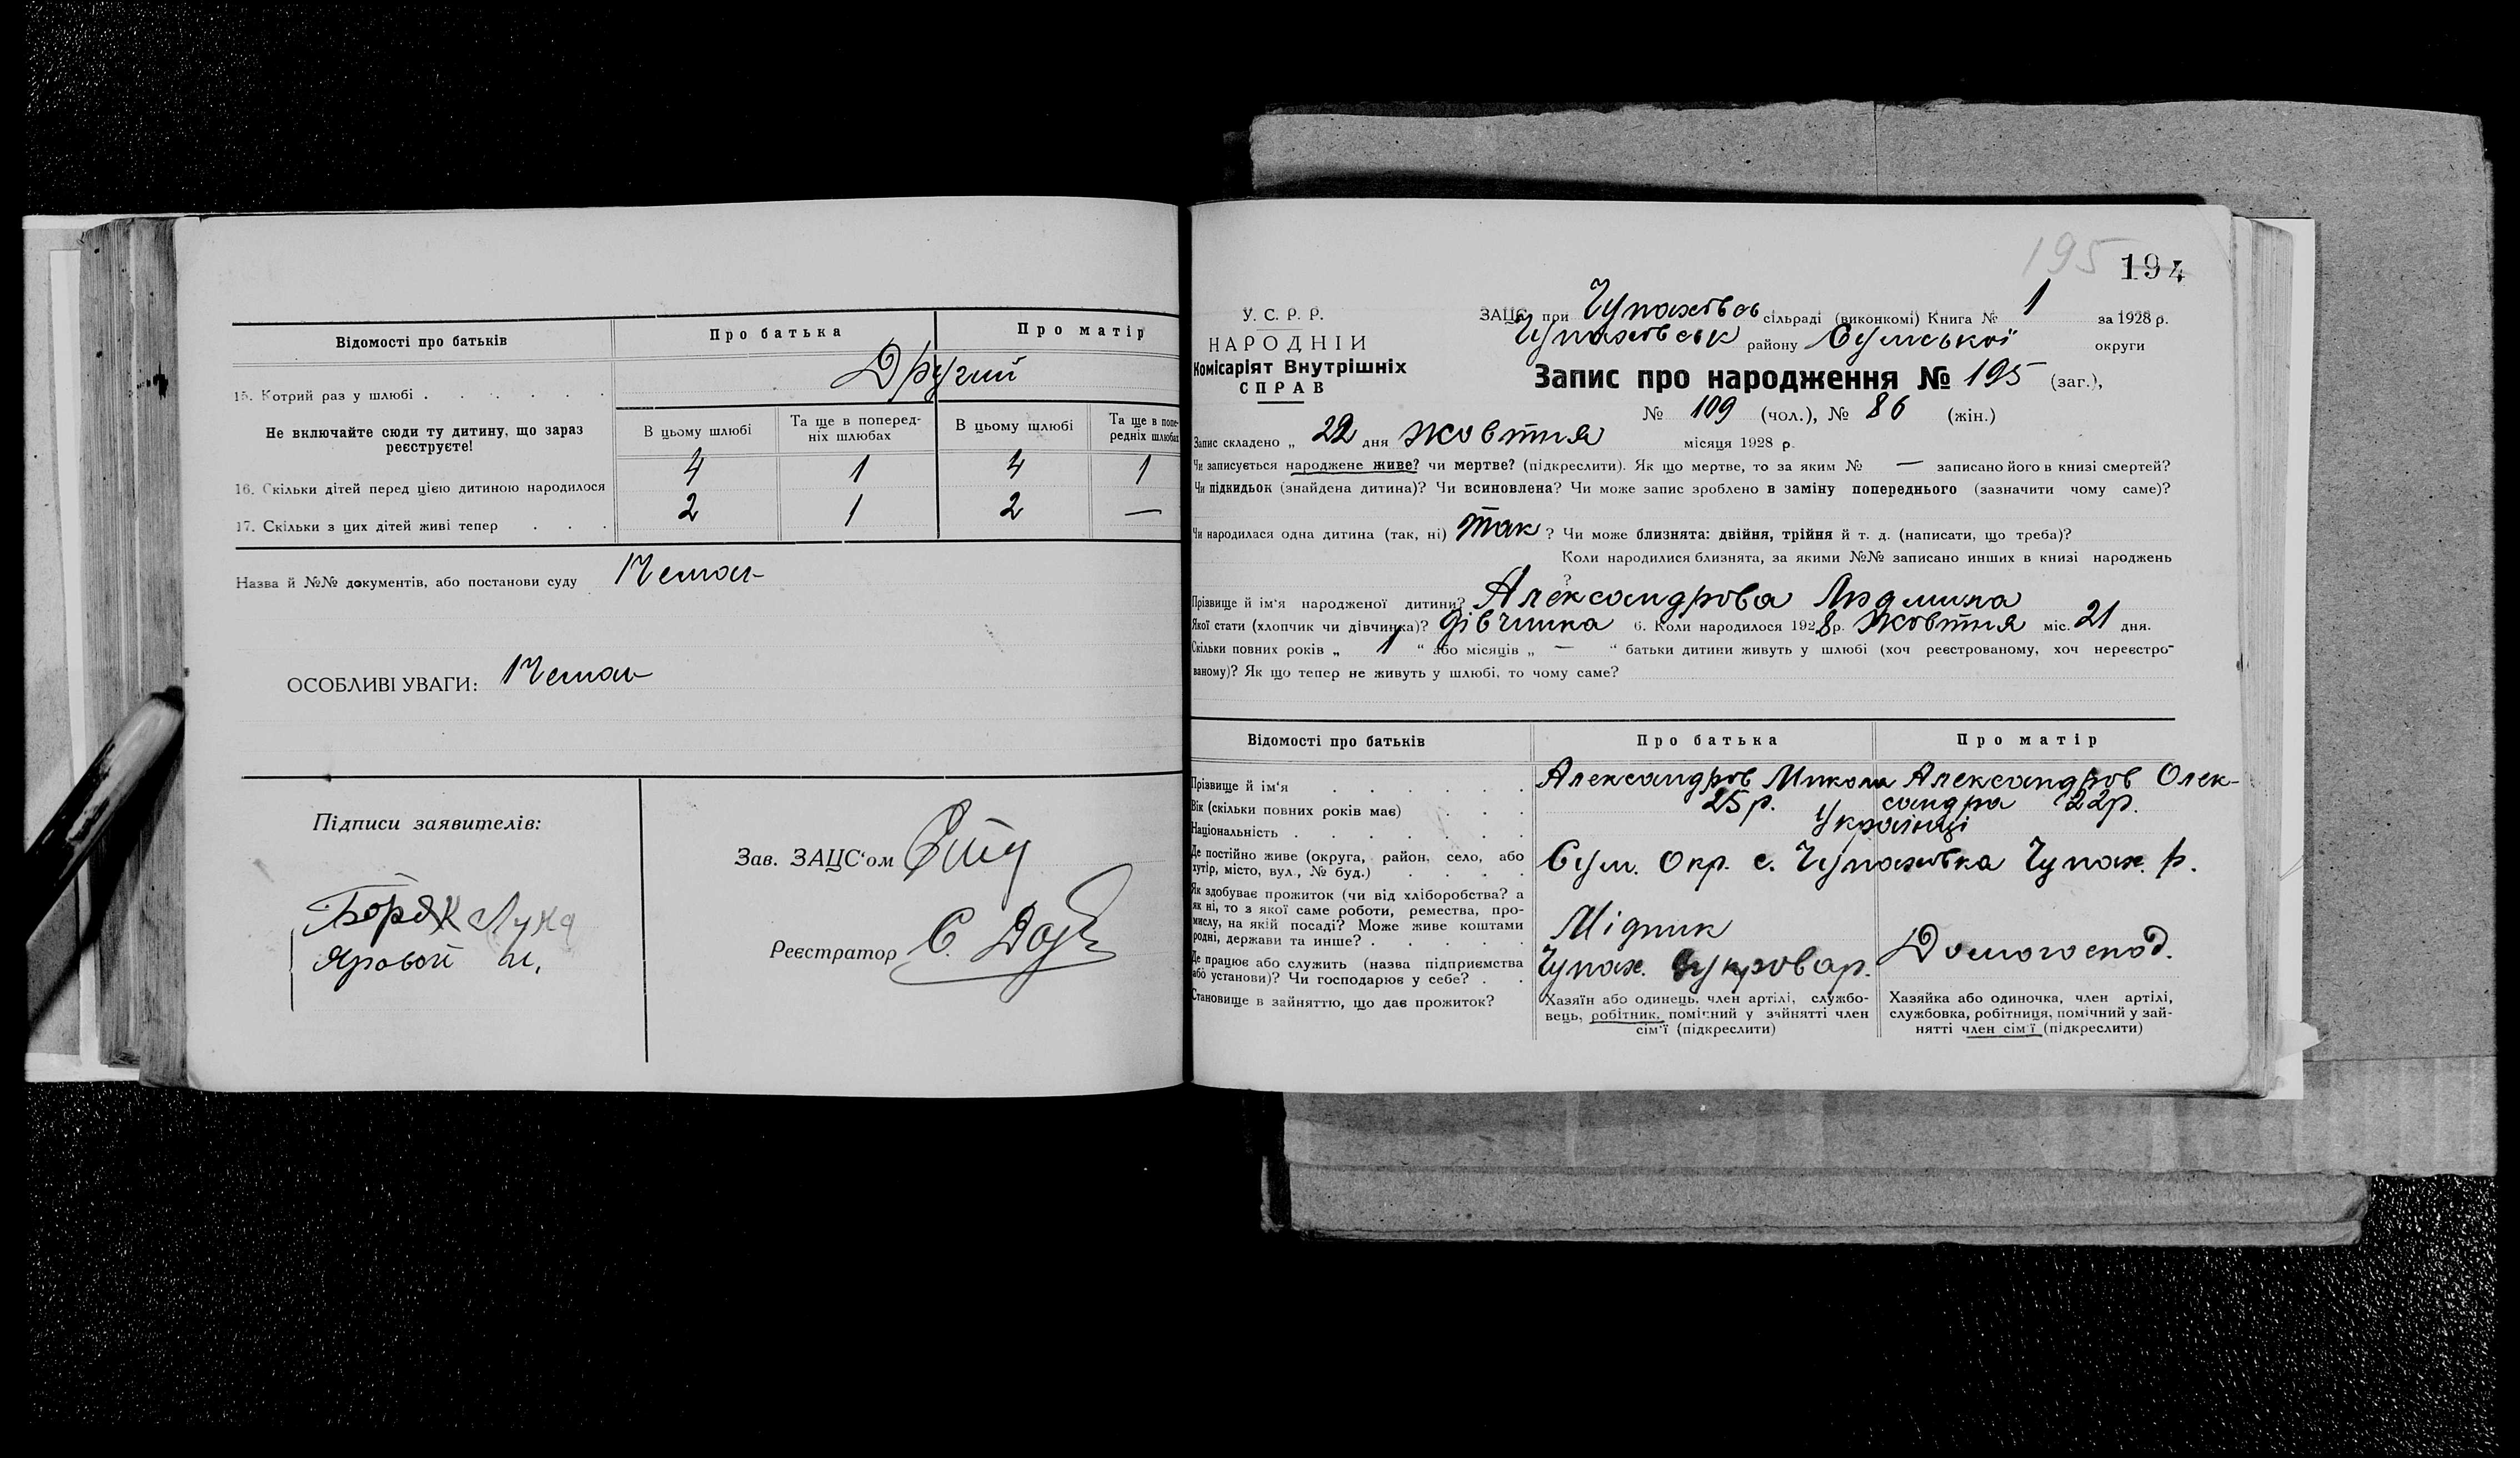 Відомості про батьків
Про батька
Про матір
15. Котрий раз у шлюбі . . . . . .
Другий
Не включайте сюди ту дитину, що зараз
реєструєте!
В цьому шлюбі
Та ще в поперед-
ніх шлюбах
В цьому шлюбі
Та ще в попе-
редніх шлюбах
16. Скільки дітей перед цією дитиною народилося
4 1 4 1
17. Скільки з цих дітей живі тепер . . .
2 1 2 —
Назва й №№ документів, або постанови суду Немає
ОСОБЛИВІ УВАГИ: Немає
Підписи заявителів:
Боряк Лука
Яровой
Зав. ЗАЦС'ом
Реєстратор С.
195 194
У. С. Р. Р.
НАРОДНІЙ
Комісаріят Внутрішніх
СПРАВ
ЗАЦС при Чупахівсь сільраді (виконкомі) Книга № 1 за 1928 р.
Чупахівськ району Сумської округи
Запис про народження № 195 (заг.),
№ 109 (чол.), № 86 (жін.)
Запис складено „ 22 дня жовтня місяця 1928 р.
Чи записується народжене живе? чи мертве? (підкреслити). Як що мертве, то за яким № — записано його в книзі смертей?
Чи підкидьок (знайдена дитина)? Чи всиновлена? Чи може запис зроблено в заміну попереднього (зазначити чому саме)?
Чи народилася одна дитина (так, ні) Так ? Чи може близнята: двійня, трійня й т. д. (написати, що треба)?
Коли народилися близнята, за якими №№ записано инших в книзі народжень
?
Прізвище й ім'я народженої дитини? Александрова Людмила
Якої стати (хлопчик чи дівчинка)? дівчинка 6. Коли народилося 1928 р. жовтня міс. 21 дня.
Скільки повних років „ 1 “ або місяців „ — “ батьки дитини живуть у шлюбі (хоч реєстрованому, хоч нереєстро-
ваному)? Як що тепер не живуть у шлюбі, то чому саме?
Відомості про батьків
Про батька
Про матір
Прізвище й ім'я . . . . . .
Александров Микола
Александров Олек-
сандра
Вік (скільки повних років має) . . .
25 р.
22 р.
Національність . . . . . . .
Українці
Де постійно живе (округа, район, село, або
хутір, місто, вул., № буд.) . . . .
Сум. Окр. с. Чупахівка Чупах. р.
Як здобуває прожиток (чи від хліборобства? а
як ні, то з якої саме роботи, ремества, про-
мислу, на якій посаді? Може живе коштами
родні, держави та инше? . . . . .
Мідник
Домогоспод.
Де працює або служить (назва підприємства
або установи)? Чи господарює у себе? . .
Чупах. Цукровар.
Становище в зайняттю, що дає прожиток?
Хазяїн або одинець, член артілі, службо-
вець, робітник, помічний у зайнятті член
сім'ї (підкреслити)
Хазяйка або одиночка, член артілі,
службовка, робітниця, помічний у зай-
нятті член сім'ї (підкреслити)